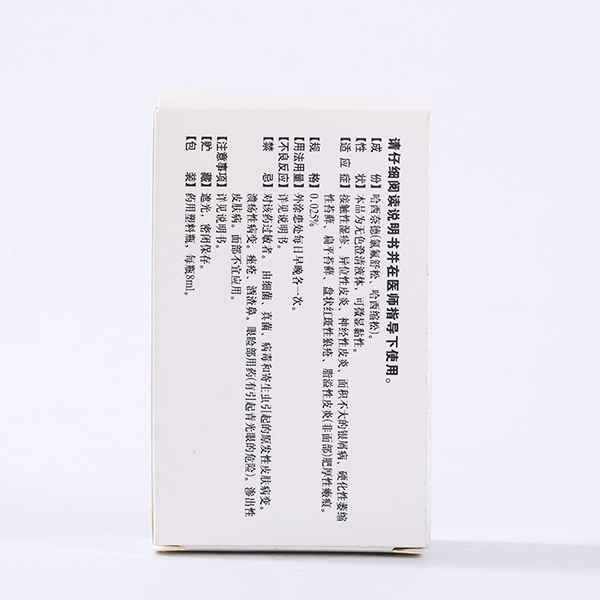 请仔细阅读说明书并在医师指导下使用。
【成　份】哈西奈德(氯氟舒松、哈西缩松)。
【性　状】本品为无色澄清液体，可微显黏性。
【适 应 症】接触性湿疹、异位性皮炎、神经性皮炎、面积不大的银屑病、硬化性萎缩
性苔藓、扁平苔藓、盘状红斑性狼疮、脂溢性皮炎(非面部)肥厚性瘢痕。
【规　格】0.025%
【用法用量】外涂患处每日早晚各一次。
【不良反应】详见说明书。
【禁　忌】对该药过敏者。由细菌、真菌、病毒和寄生虫引起的原发性皮肤病变。
溃疡性病变。痤疮、酒渣鼻。眼睑部用药(有引起青光眼的危险)。渗出性
皮肤病。面部不宜应用。
【注意事项】详见说明书。
【贮　藏】遮光，密闭保存。
【包　装】药用塑料瓶，每瓶8ml。